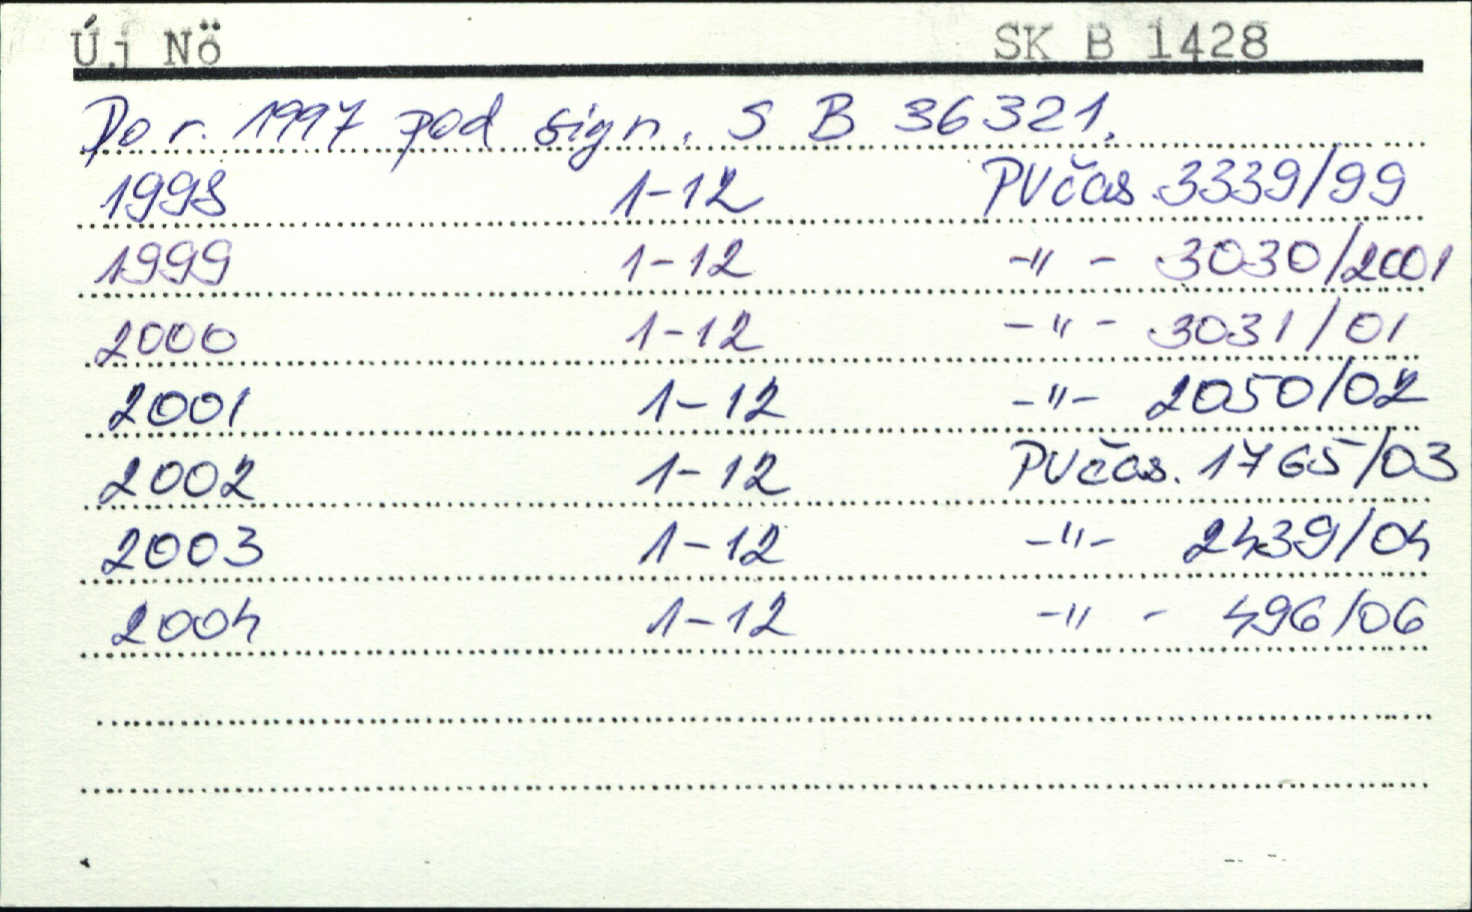 Új Nő SK B 1428
Do r. 1997 pod sign. S B 36321.
1998 1-12 PVčas 3339/99
1999 1-12 -"- 3030/2001
2000 1-12 -"- 3031/01
2001 1-12 -"- 2050/02
2002 1-12 PVčas. 1765/03
2003 1-12 -"- 2439/04
2004 1-12 -"- 496/06